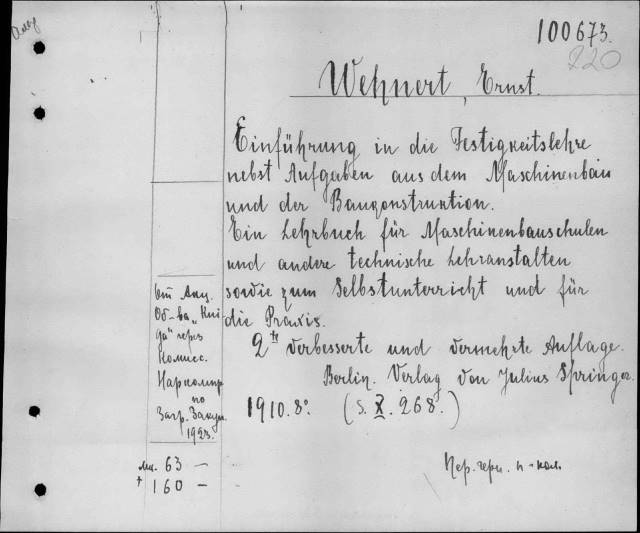 100673.
220
Wehnert, Ernst.
Einführung in die Festigkeitslehre
nebst Aufgaben aus dem Maschinenbau
und der Baukonstruktion.
Ein Lehrbuch für Maschinenbauschulen
und andere technische Lehranstalten
sowie zum Selbstunterricht und für
die Praxis.
2te verbesserte und vermehrte Auflage.
Berlin. Verlag von Julius Springer.
1910. 8º. (S. X. 268.)
От Акц.
Об-ва „Кни
га" через
Комисс.
Наркомпр
по
Загр. Закуп.
1923.
мк. 63 —
† 160 —
Пер. черн. п-кол.